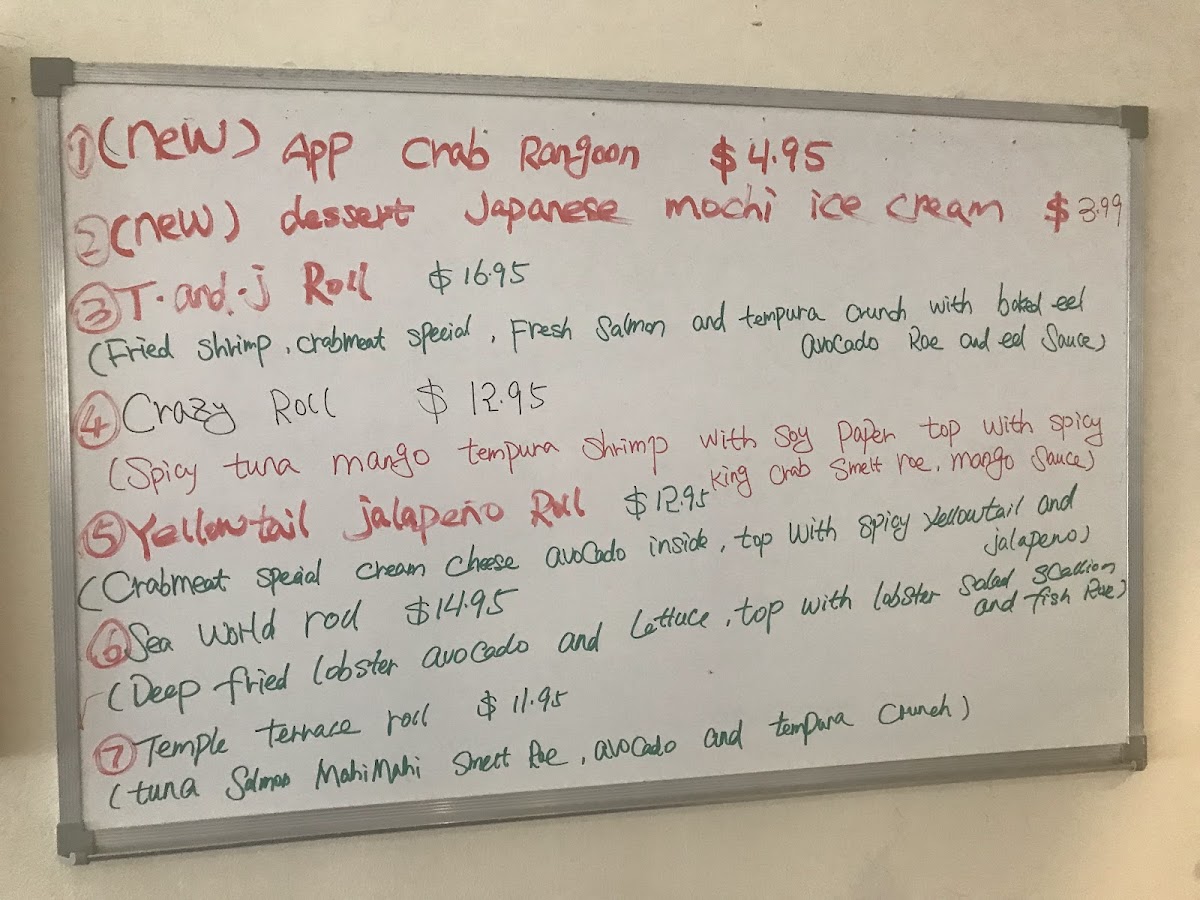 ① (new) App Crab Rangoon $4.95
② (new) dessert Japanese mochi ice cream $3.99
③ T.and.j Roll $16.95
(Fried shrimp, crabmeat special, Fresh Salmon and tempura crunch with baked eel
avocado Roe and eel Sauce)
④ Crazy Roll $12.95
(Spicy tuna mango tempura shrimp with soy paper top with spicy
king crab smelt roe, mango sauce)
⑤ Yellowtail jalapeño Roll $12.95
(Crabmeat special cream cheese avocado inside, top with spicy yellowtail and
jalapeno)
⑥ Sea World roll $14.95
(Deep fried lobster avocado and lettuce, top with lobster salad scallion
and fish Roe)
⑦ Temple terrace roll $11.95
(tuna Salmon MahiMahi Smelt Roe, avocado and tempura crunch)